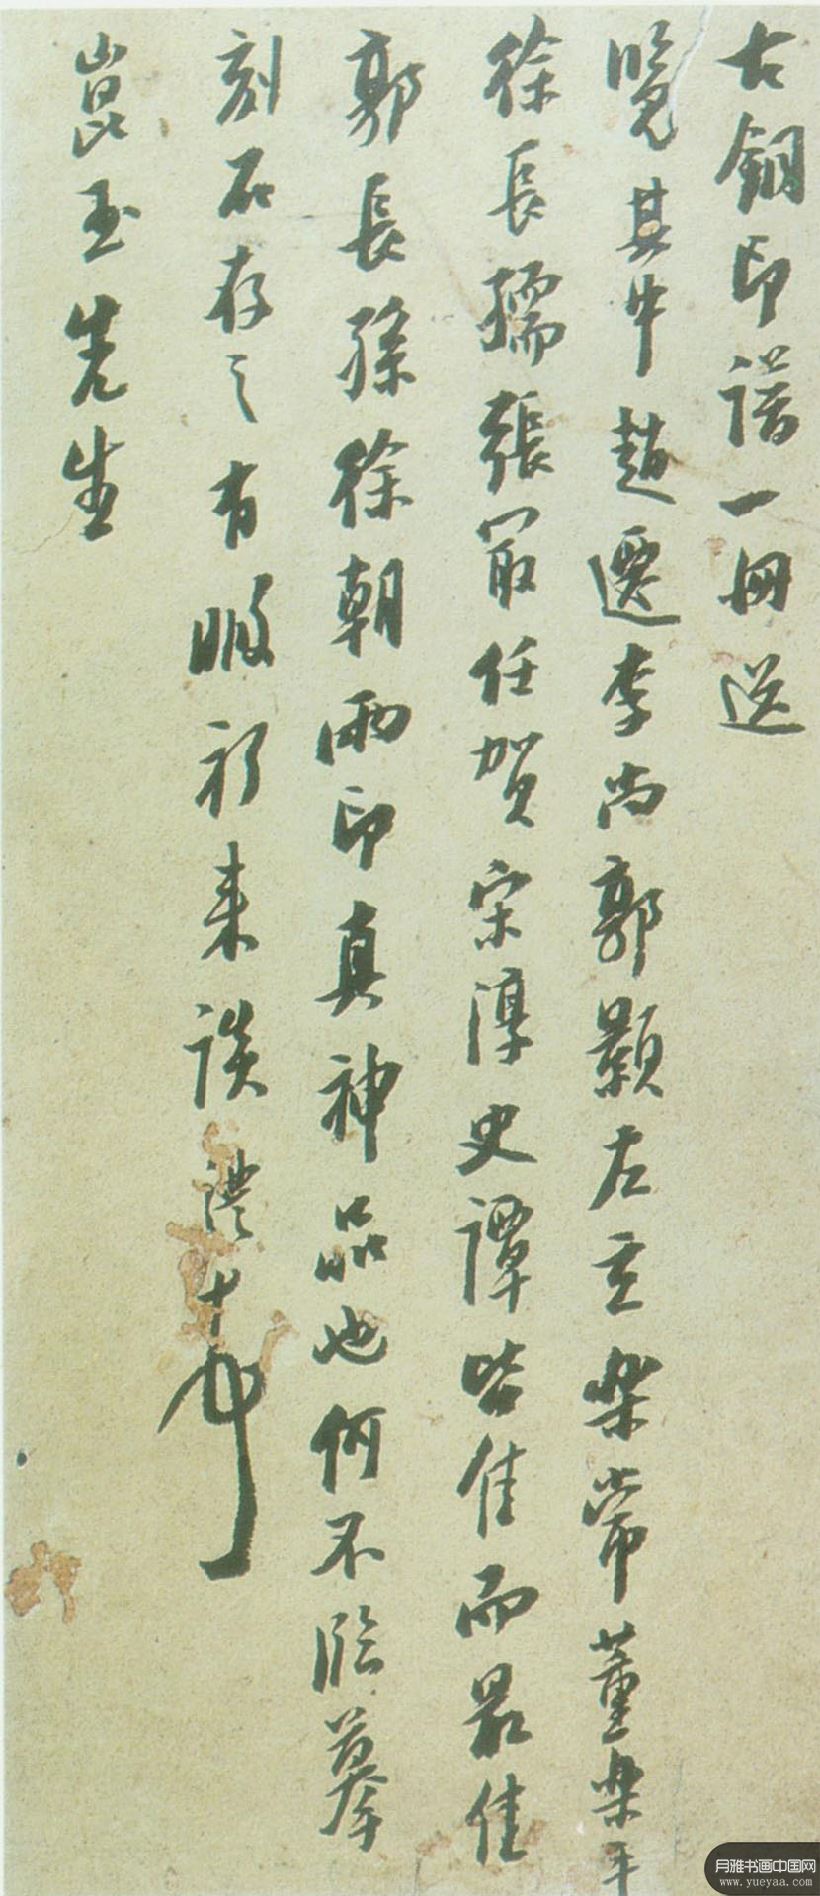 古銅印譜一冊送
覽其中趙遷李尚郭顥左立樂常董樂平
徐長孺張冣任賀宋淳史譚皆佳而最佳
郭長孫徐朝兩印真神品也何不臨摹
刻石存之有暇祈来談 澧
崑玉先生
月雅书画中国网
www.yueyaa.com